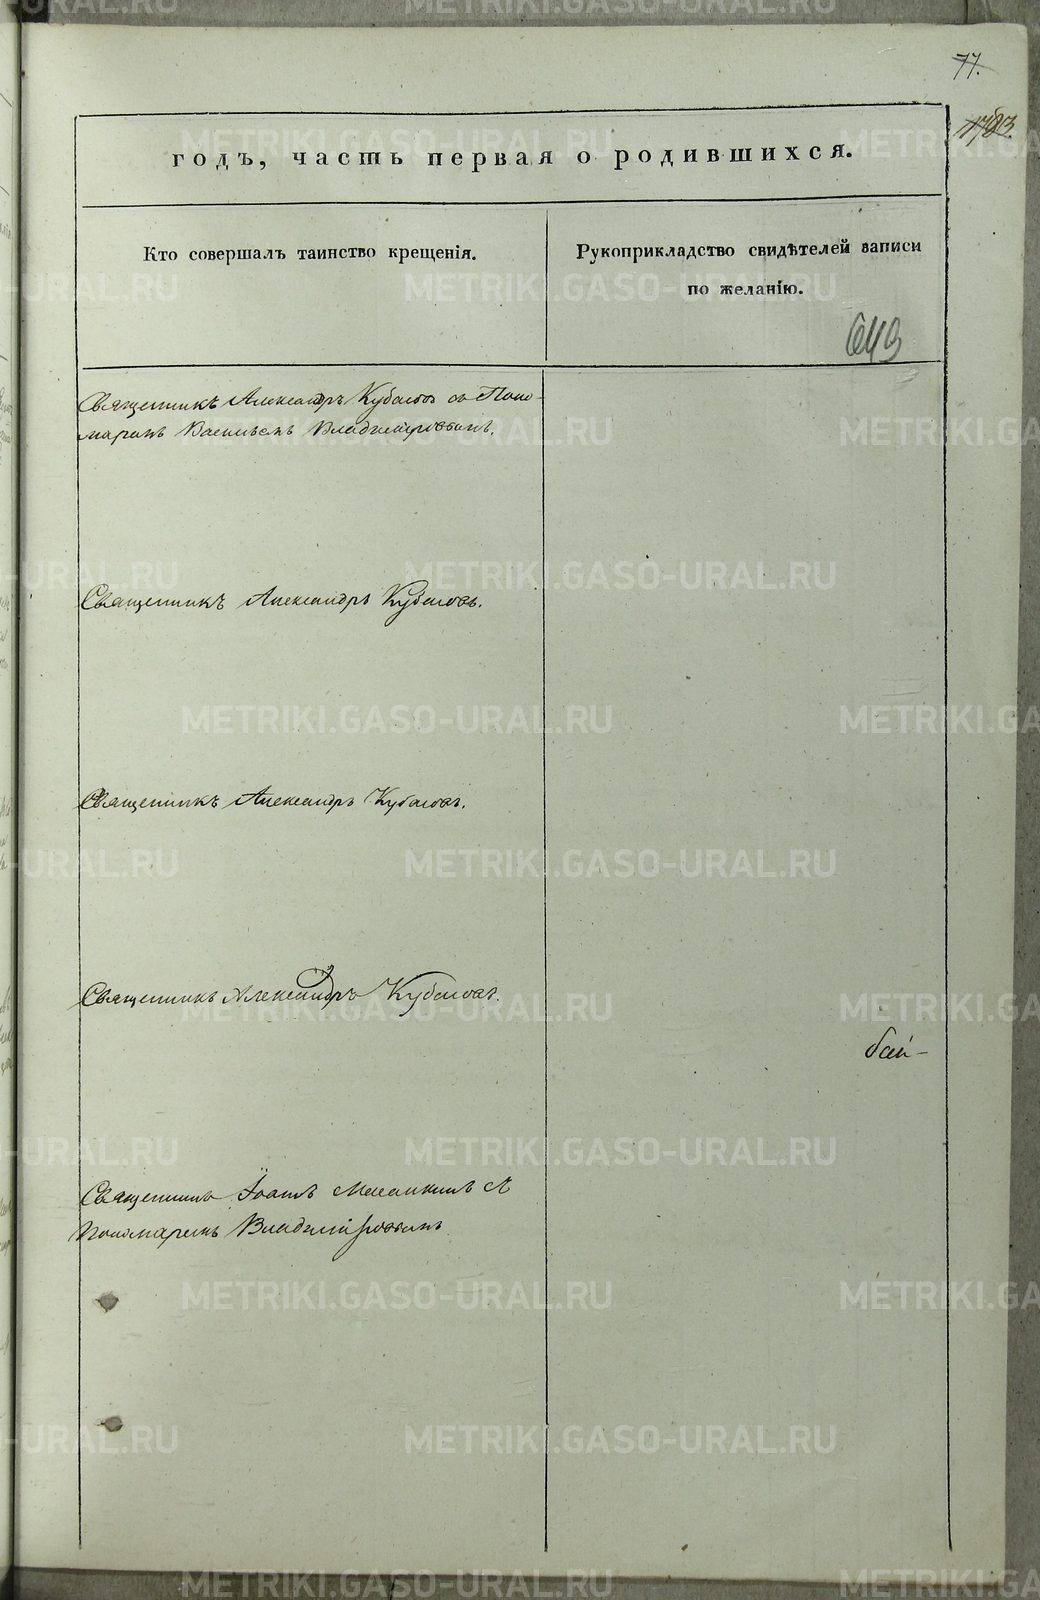 77.
годъ, часть первая о родившихся.
Кто совершалъ таинство крещенія.
Рукоприкладство свидѣтелей записи
по желанію.
649
Священникъ Александръ Кубасовъ съ Поно-
маремъ Васильемъ Владиміровымъ.
Священникъ Александръ Кубасовъ.
Священникъ Александръ Кубасовъ.
Священникъ Александръ Кубасовъ.
Священникъ Іоаннъ
Пономаремъ Владиміровымъ
METRIKI.GASO-URAL.RU